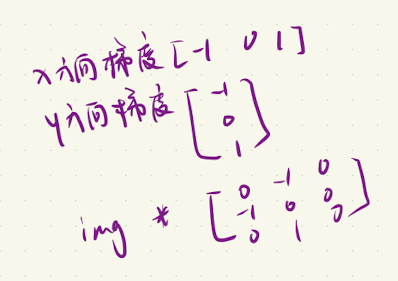 x方向梯度 [-1 0 1]
y方向梯度 [-1
0
1]
img * [0 -1 0
-1 0 0
0 1 0]